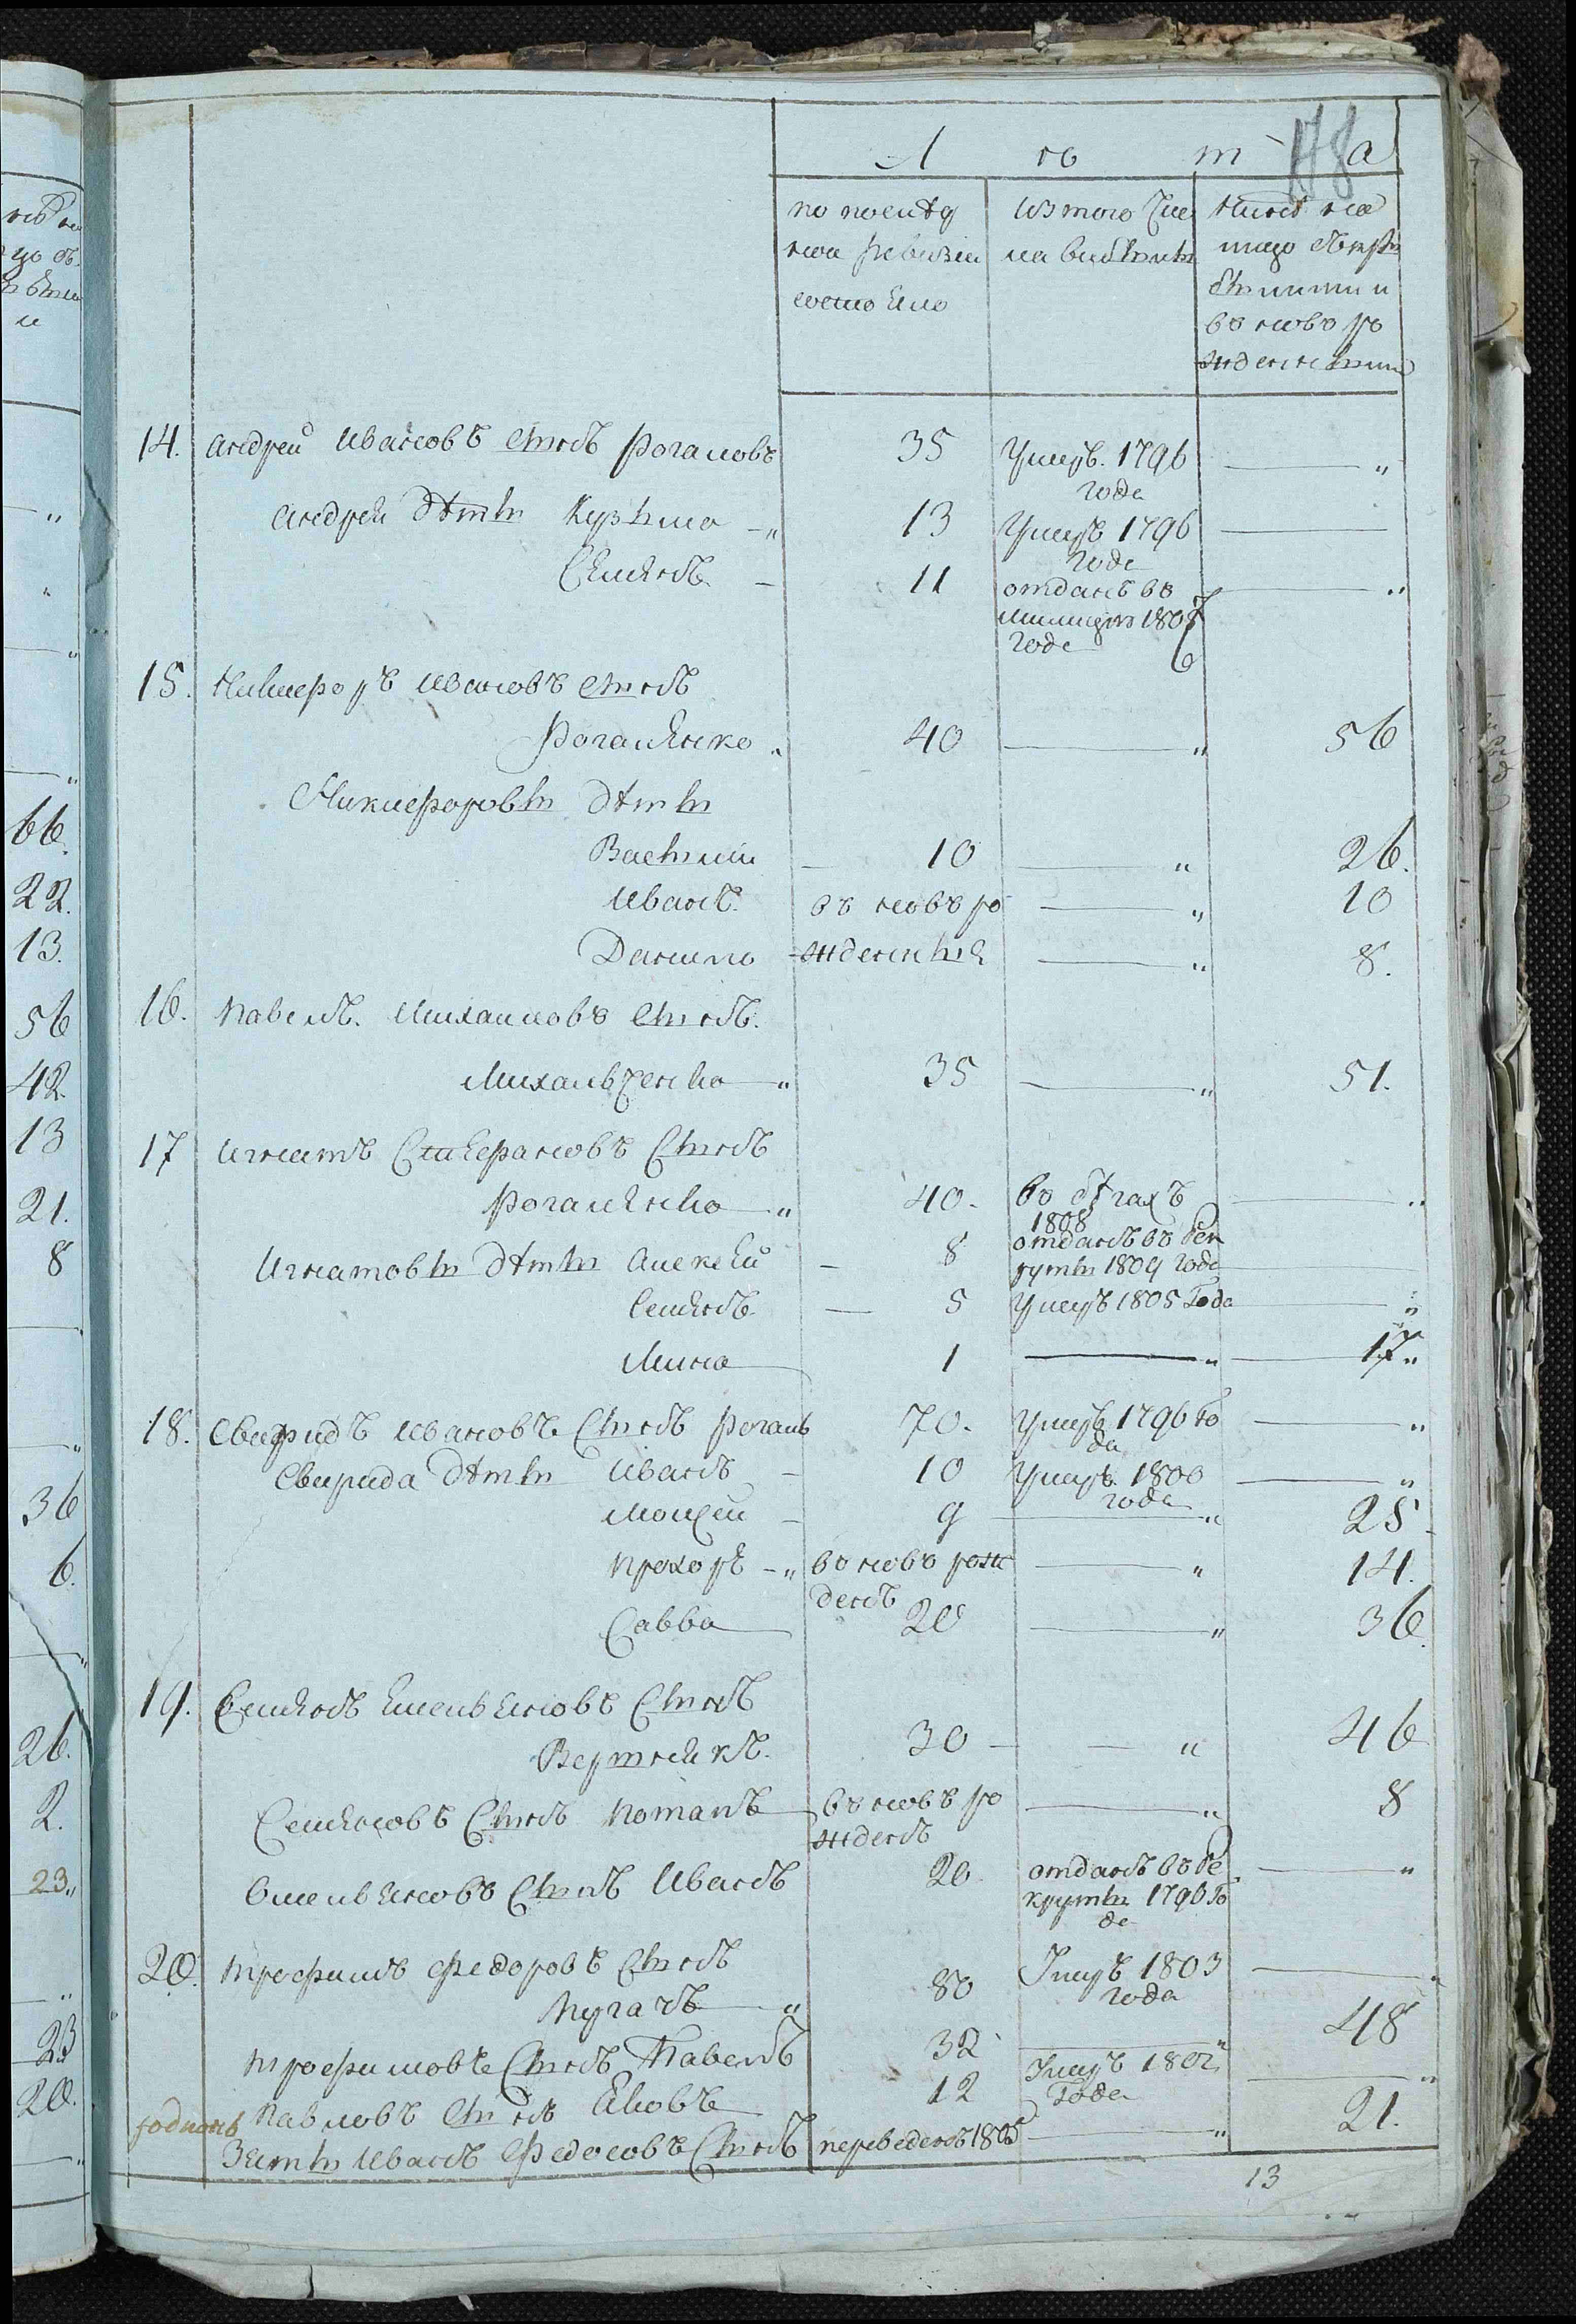 178
Л ѣ т а
по последней ревизіи состояло
Изъ того числа выбыло
Ныне на лицо
въ ново рожденными
14. Андрей Ивановъ сынъ Рогановъ 35 Умръ. 1796 года — „
Андрея дѣти Кузьма — „ 13 Умръ 1796 года —
Семенъ — 11 отданъ въ милицію 1807 года — „
15. Никифоръ Ивановъ сынъ
Роганенко „ 40 — „ 56
Никифоровы дѣти
Василий — 10 — „ 26.
Иванъ. въ новъ ро — „ 10
Данило жденныя — „ 8.
16. Павелъ. Михаиловъ сынъ.
Михальченко — „ 35 — „ 51.
17 Игнатъ Сперановъ Сынъ
Роганенко — „ 40. Въ бѣгахъ 1808 — „
Игнатовы дѣти Алексей — 8 отданъ въ рекруты 1809 года —
Семенъ — 5 Умръ 1805 Года — „
Мина 1 — „ — 17 „
18. Свиридъ Ивановъ Сынъ Рогань 70. Умръ 1796 Года — „
Свирида дѣти Иванъ — 10 Умръ. 1800 года — „
Мосей — 9 — „ 25
Прохоръ — „ въ новъ рожденъ — „ 14.
Савва 20 — „ 36.
19. Семенъ Емельяновъ Сынъ
Вертейкъ. 30 — — „ 46
Семеновъ Сынъ Потапъ въ новъ рожденъ — „ 8
Омельяновъ Сынъ Иванъ 20. отданъ въ рекруты 1796 Года — „
20. Трофимъ Федоровъ Сынъ
Пугачъ „ 80 Умръ 1803 года — „
Трофимовъ Сынъ Павелъ 32 — „ 48
Павловъ сынъ Яковъ 12 Умръ 1802 Года — „
Зять Иванъ Федосовъ Сынъ переведенъ 180 — „ 21.
13
66.
22.
13.
56
42.
13
21.
8
36
6.
26.
2.
23 „
23
20.